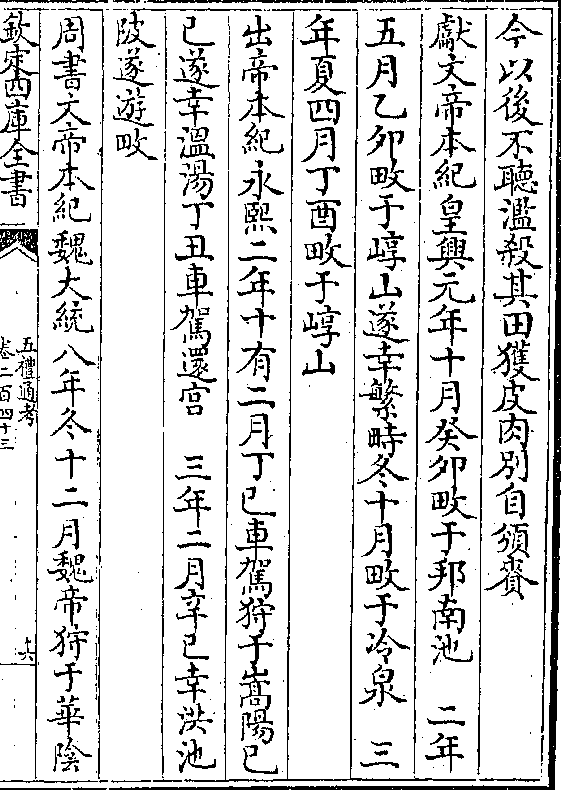 今以後不聽濫殺其田獲皮肉別自頒賚
獻文帝本紀皇興元年十月癸卯畋于那南池　二年
五月乙卯畋于崞山遂幸繁畤冬十月畋于冷泉　三
年夏四月丁酉畋于崞山
出帝本紀永熙二年十有二月丁巳車駕狩于嵩陽己
巳遂幸溫湯丁丑車駕還宮　三年二月辛巳幸洪池
陂遂游畋
周書文帝本紀魏大統八年冬十二月魏帝狩于華陰
欽定四庫全書
五禮通考
卷二百四十三
十六